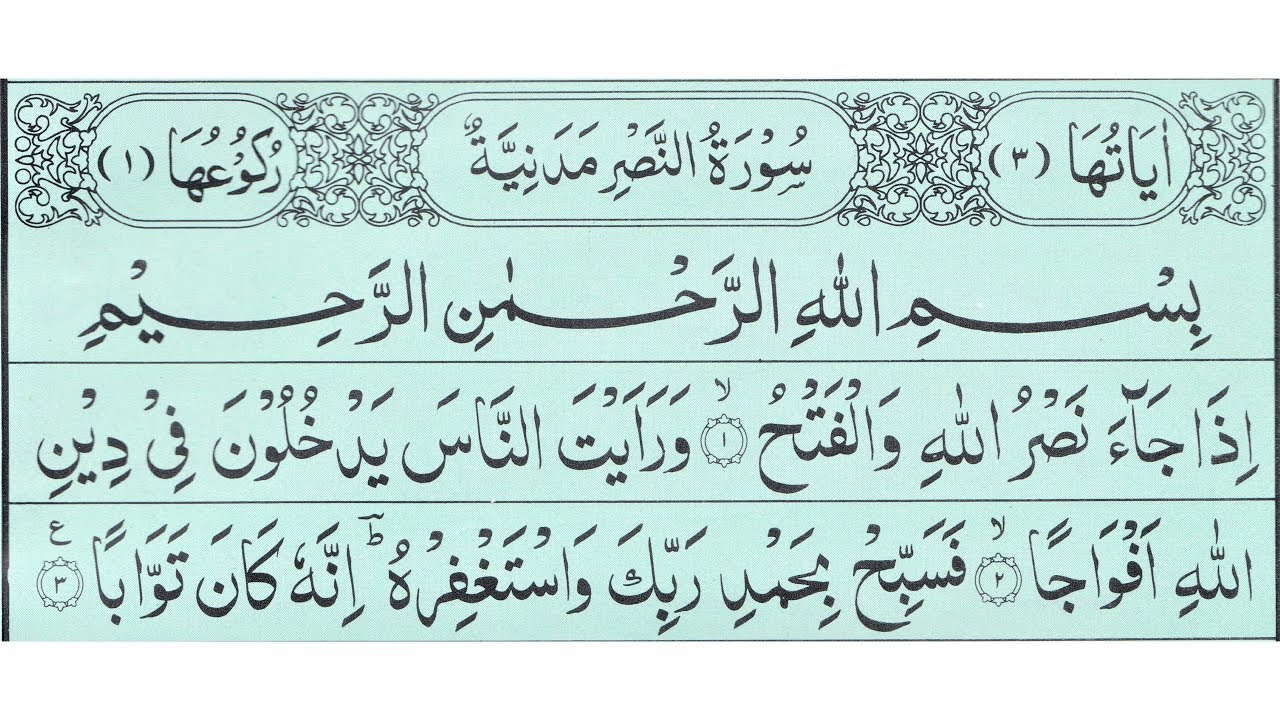 اٰيَاتُهَا (٣) سُوْرَةُ النَّصْرِ مَدَنِيَّةٌ رُكُوْعُهَا (١)
بِسْمِ اللّٰهِ الرَّحْمٰنِ الرَّحِيْمِ
اِذَا جَآءَ نَصْرُ اللّٰهِ وَالْفَتْحُ ۙ ١ وَرَاَيْتَ النَّاسَ يَدْخُلُوْنَ فِيْ دِيْنِ
اللّٰهِ اَفْوَاجًا ۙ ٢ فَسَبِّحْ بِحَمْدِ رَبِّكَ وَاسْتَغْفِرْهُ ؕ اِنَّهٗ كَانَ تَوَّابًا ٣ ع